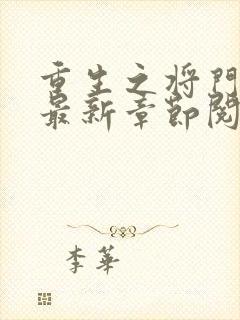 重生之将门
最新章节阅
李華